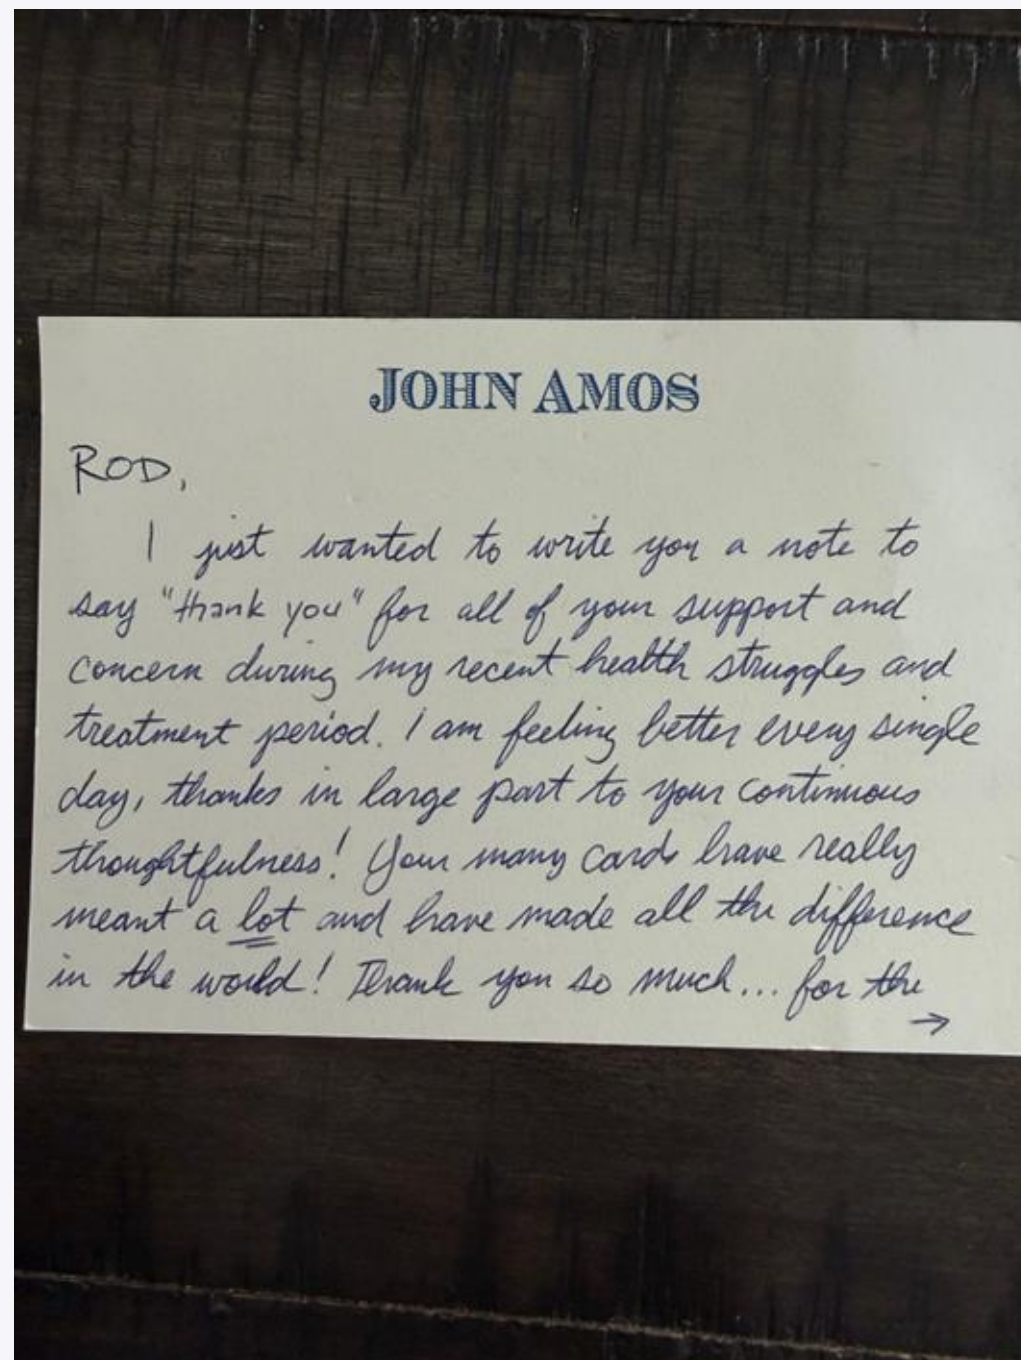 JOHN AMOS
ROD,
I just wanted to write you a note to
say "thank you" for all of your support and
concern during my recent health struggles and
treatment period. I am feeling better every single
day, thanks in large part to your continuous
thoughtfulness! Your many cards have really
meant a lot and have made all the difference
in the world! Thank you so much... for the
→